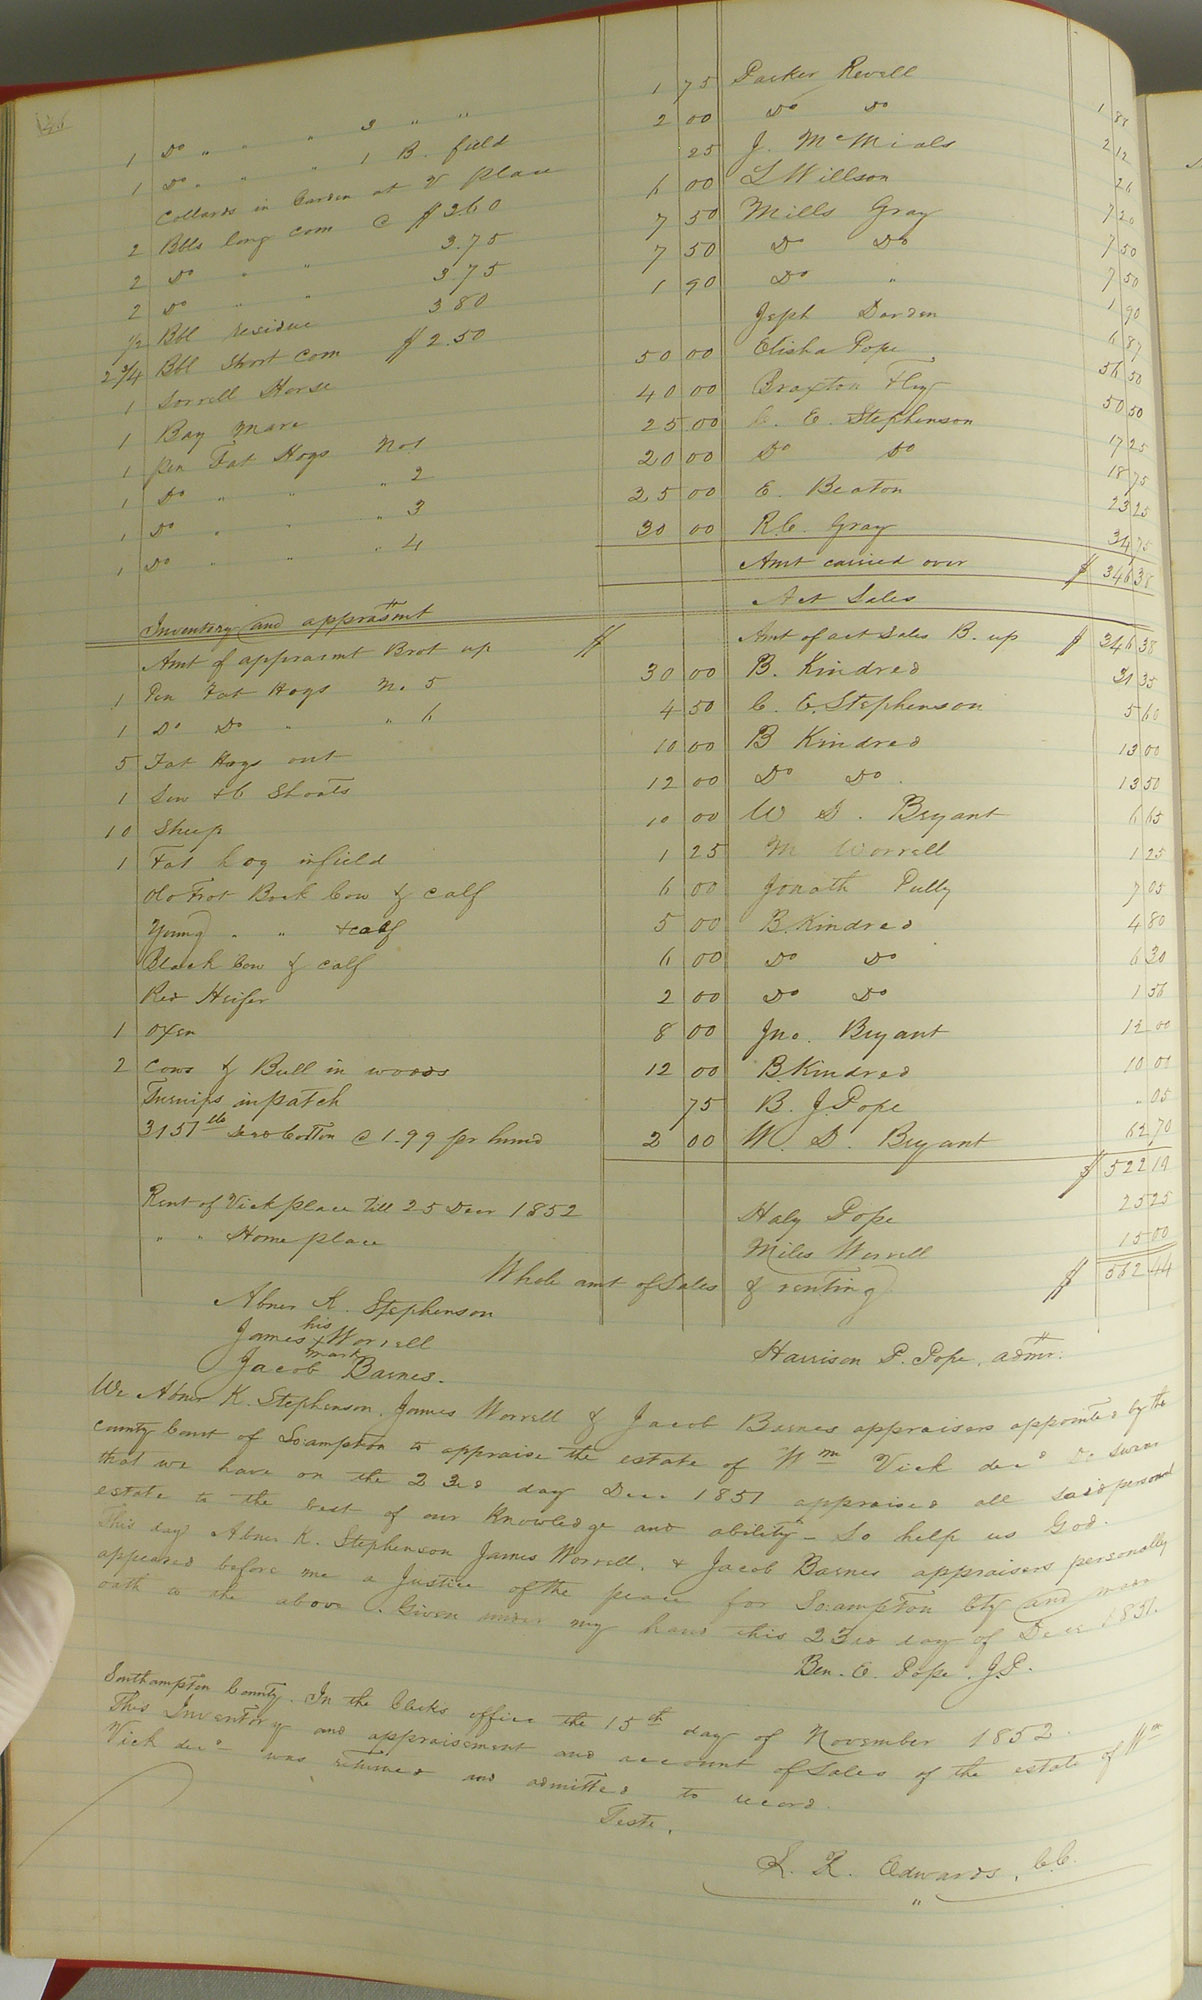 1 Do " " " 3 " " 1 75 Parker Revell 1 88
1 Do " " " 1 B. field 2 00 Do Do 2 12
Collards in Garden at V place 25 J. McMials 26
2 Bbls long corn @ $ 360 6 00 L Willson 7 20
2 Do " " 3.75 7 50 Mills Gray 7 50
2 Do " " 375 7 50 Do Do 7 50
1/2 Bbl residue 380 1 90 Do " 1 90
2 3/4 Bbl Short corn $ 2.50 Jeph Darden 6 87
1 Sorrell Horse 50 00 Elisha Pope 56 50
1 Bay Mare 40 00 Braxton Flyg 50 50
1 Pen Fat Hogs No 1 25 00 C. E. Stephenson 17 25
1 Do " " " 2 20 00 Do Do 18 75
1 Do " " " 3 25 00 E. Beaton 23 25
1 Do " " " 4 30 00 R.C. Gray 34 75
Amt carried over $ 346 38
Inventory and apprasmt Act Sales
Amt of apprasmt Brot up $ Amt of act Sales B. up $ 346 38
1 Pen Fat Hogs No. 5 30 00 B. Kindred 31 35
1 Do Do " " 6 4 50 C. E. Stephenson 5 60
5 Fat Hogs out 10 00 B Kindred 13 00
1 Sow & 6 Shoats 12 00 Do Do 13 50
10 Sheep 10 00 W D. Bryant 6 65
1 Fat hog in field 1 25 M Worrell 1 25
Old Frot Back Cow & calf 6 00 Jonath Pully 7 05
Young " " & calf 5 00 B. Kindred 4 80
Black Cow & calf 6 00 Do Do 6 30
Red Heifer 2 00 Do Do 1 56
1 Oxen 8 00 Jno. Bryant 12 00
2 Cows & Bull in woods 12 00 B. Kindred 10 00
Turnips in patch 75 B. J. Pope " 05
3151 lb Seed Cotton @ 1.99 pr hund 2 00 W. D. Bryant 62 70
$ 522 19
Rent of Vick place till 25 Decr 1852 Haly Pope 25 25
" " Home place Miles Worrell 15 00
Whole amt of Sales & renting $ 562 44
Abner K. Stephenson
his
James x Worrell
mark
Jacob Barnes. Harrison P. Pope, admr.
We Abner K. Stephenson, James Worrell & Jacob Barnes appraisers appointed by the
county Court of So:ampton to appraise the estate of Wm Vick decd do swear
that we have on the 23rd day Decr 1851 appraised all said personal
estate to the best of our Knowledge and ability - So help us God.
This day Abner K. Stephenson James Worrell, & Jacob Barnes appraisers personally
appeared before me a Justice of the peace for So:ampton Cty and made
oath to the above. Given under my hand this 23rd day of Decr 1851.
Ben. E. Pope. J.P.
Southampton County. In the Clerks office the 15th day of November 1852.
This Inventory and appraisement and account of Sales of the estate of Wm
Vick decd was returned and admitted to record.
Teste,
L. R. Edwards, C.C.